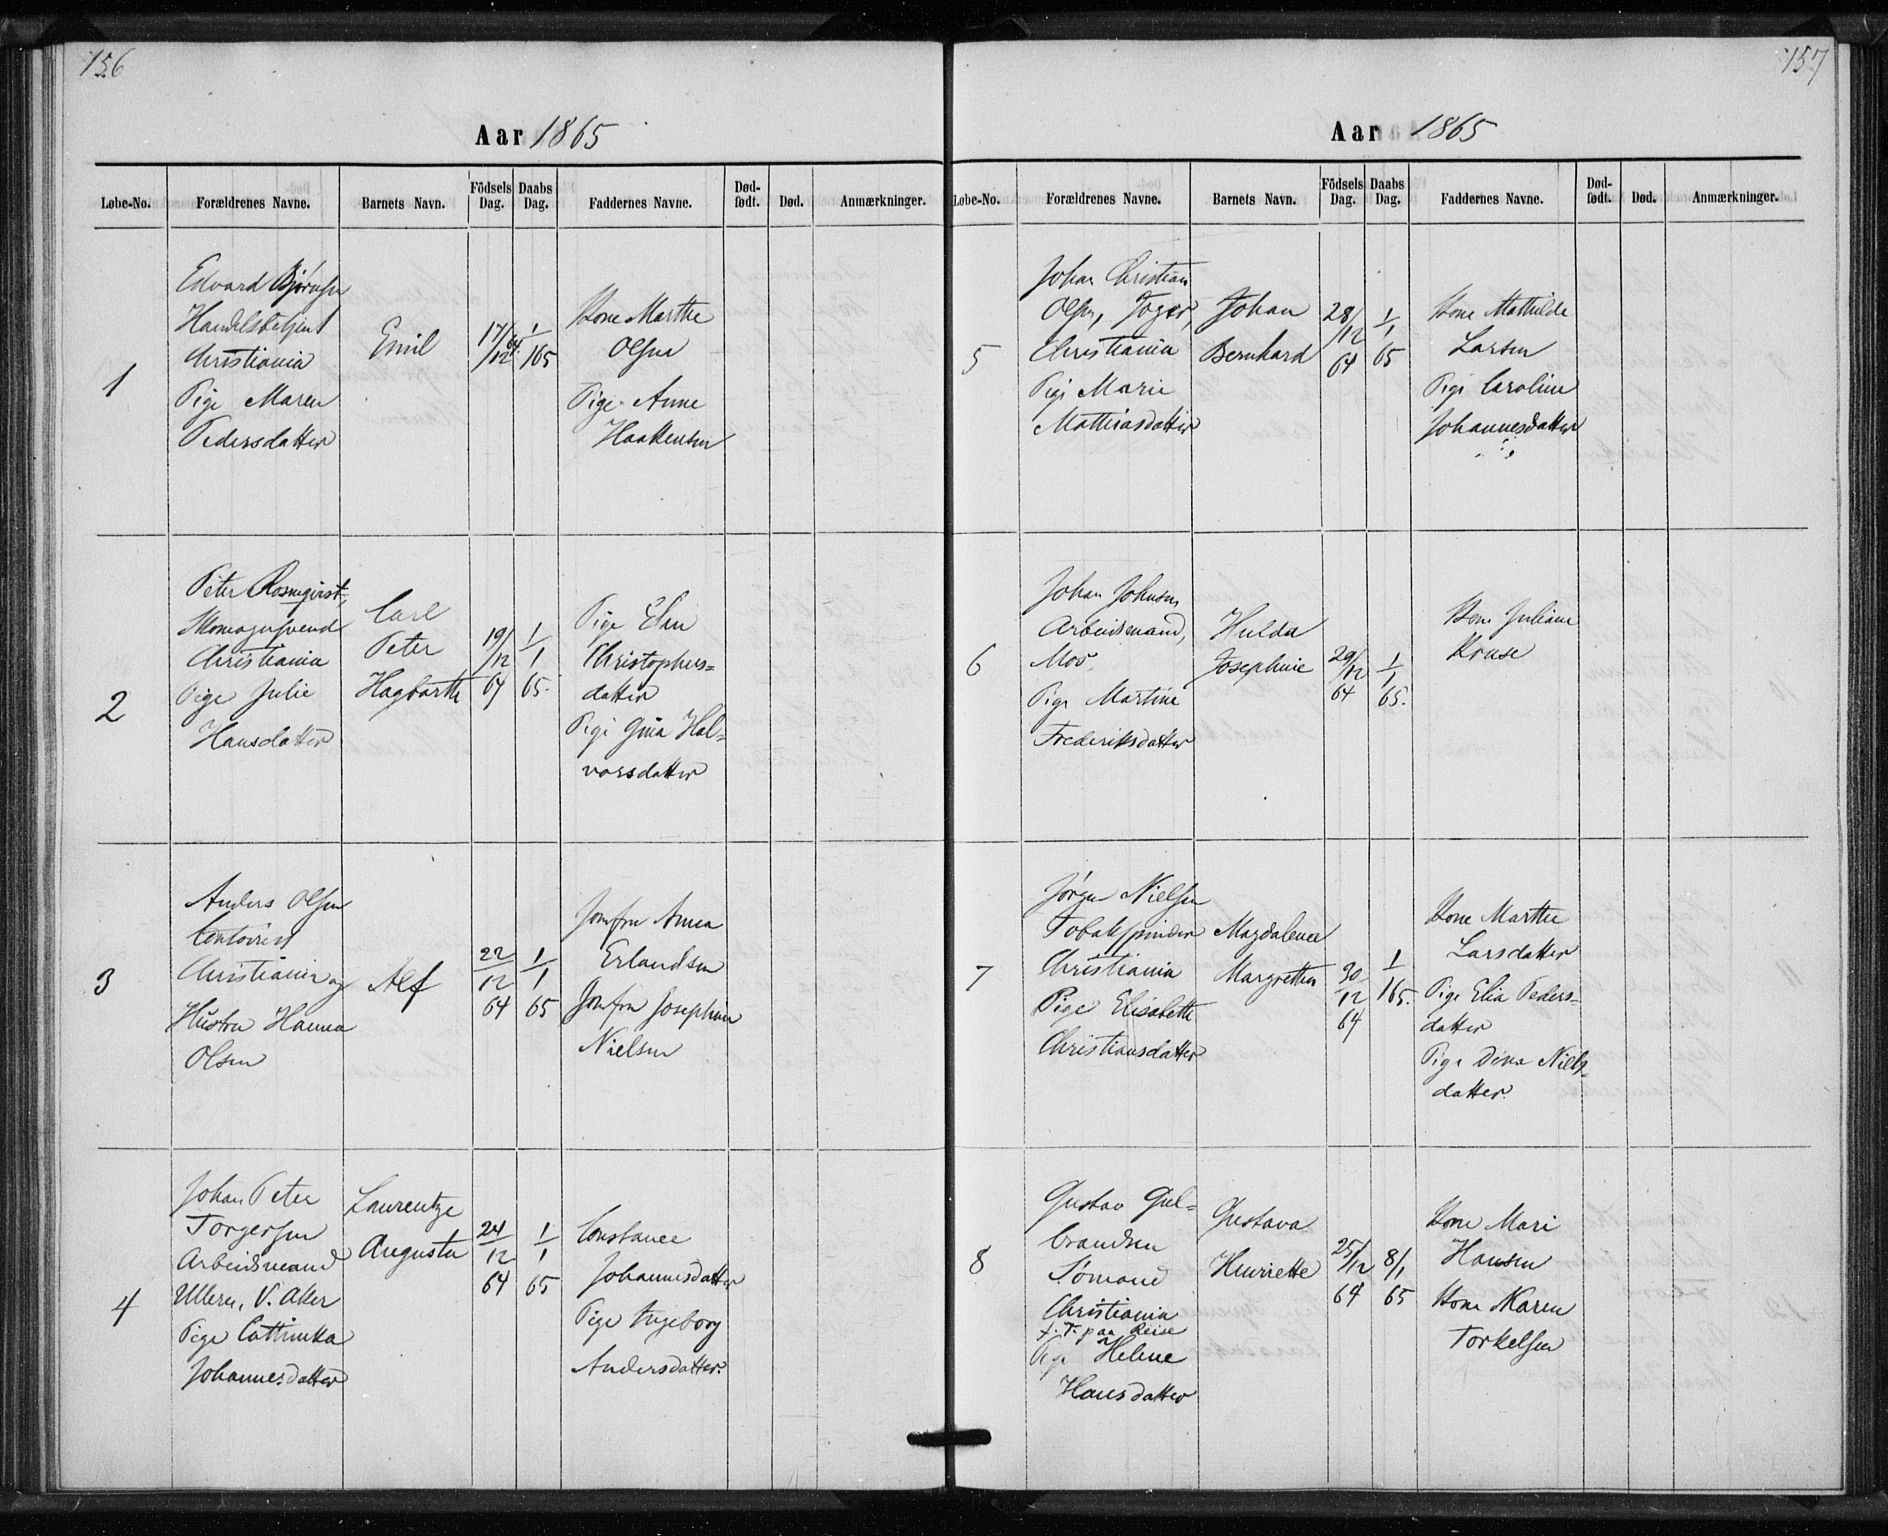 156
Aar 1865
Løbe-No. Forældrenes Navne. Barnets Navn. Födsels Dag. Daabs Dag. Faddernes Navne. Død-født. Død. Anmærkninger.
1
Edvard Bjørnsen
Handelsbetjent
Christiania
Pige Maren
Pedersdatter
Emil
17/12 64
1/1 65
Kone Marthe
Olsen
Pige Anne
Haakensen
2
Peter Rosenqvist,
Christiania
Pige Julie
Hansdatter
Carl
Peter
Hagbarth
19/12 64
1/1 65.
Pige Elen
Christophers-
datter
Pige Gina Hal-
vorsdatter
3
Anders Olsen
Contorist
Christiania og
Hustru Hanna
Olsen
Alf
22/12 64
1/1 65
Jomfru Anna
Erlandsen
Jomfru Josephine
Nielsen
4
Johan Peter
Torgersen
Arbeidsmand
Ullern, V. Aker
Pige Cathinka
Johannesdatter
Laurentze
Augusta
24/12 64
1/1 65
Constance
Johannesdatter
Pige Ingeborg
Andersdatter.
157
Aar 1865
Løbe-No. Forældrenes Navne. Barnets Navn. Födsels Dag. Daabs Dag. Faddernes Navne. Død-født. Død. Anmærkninger.
5
Johan Christian
Olsen,
Christiania
Pige Marie
Mathiasdatter
Johan
Bernhard
28/12 64
1/1 65
Kone Mathilde
Larsen
Pige Caroline
Johannesdatter
6
Johan Johnsen
Arbeidsmand,
Mos.
Pige Martine
Frederiksdatter
Hulda
Josephine
29/12 64
1/1 65.
Kone Juliane
Kruse
7
Jørgen Nielsen
Tobakspinder
Christiania
Pige Elisabeth
Christiansdatter
Magdalena
Margretha
30/12 64
1/1 65.
Kone Marthe
Larsdatter
Pige Elia Peders-
datter
Pige Dina Niels-
datter.
8
Gustav Gul-
brandsen
Sømand
Christiania
f. T. paa Reise
Pige Helene
Hansdatter
Gustava
Henriette
25/12 64
8/1 65
Kone Mari
Hansen
Kone Karen
Torkelsen